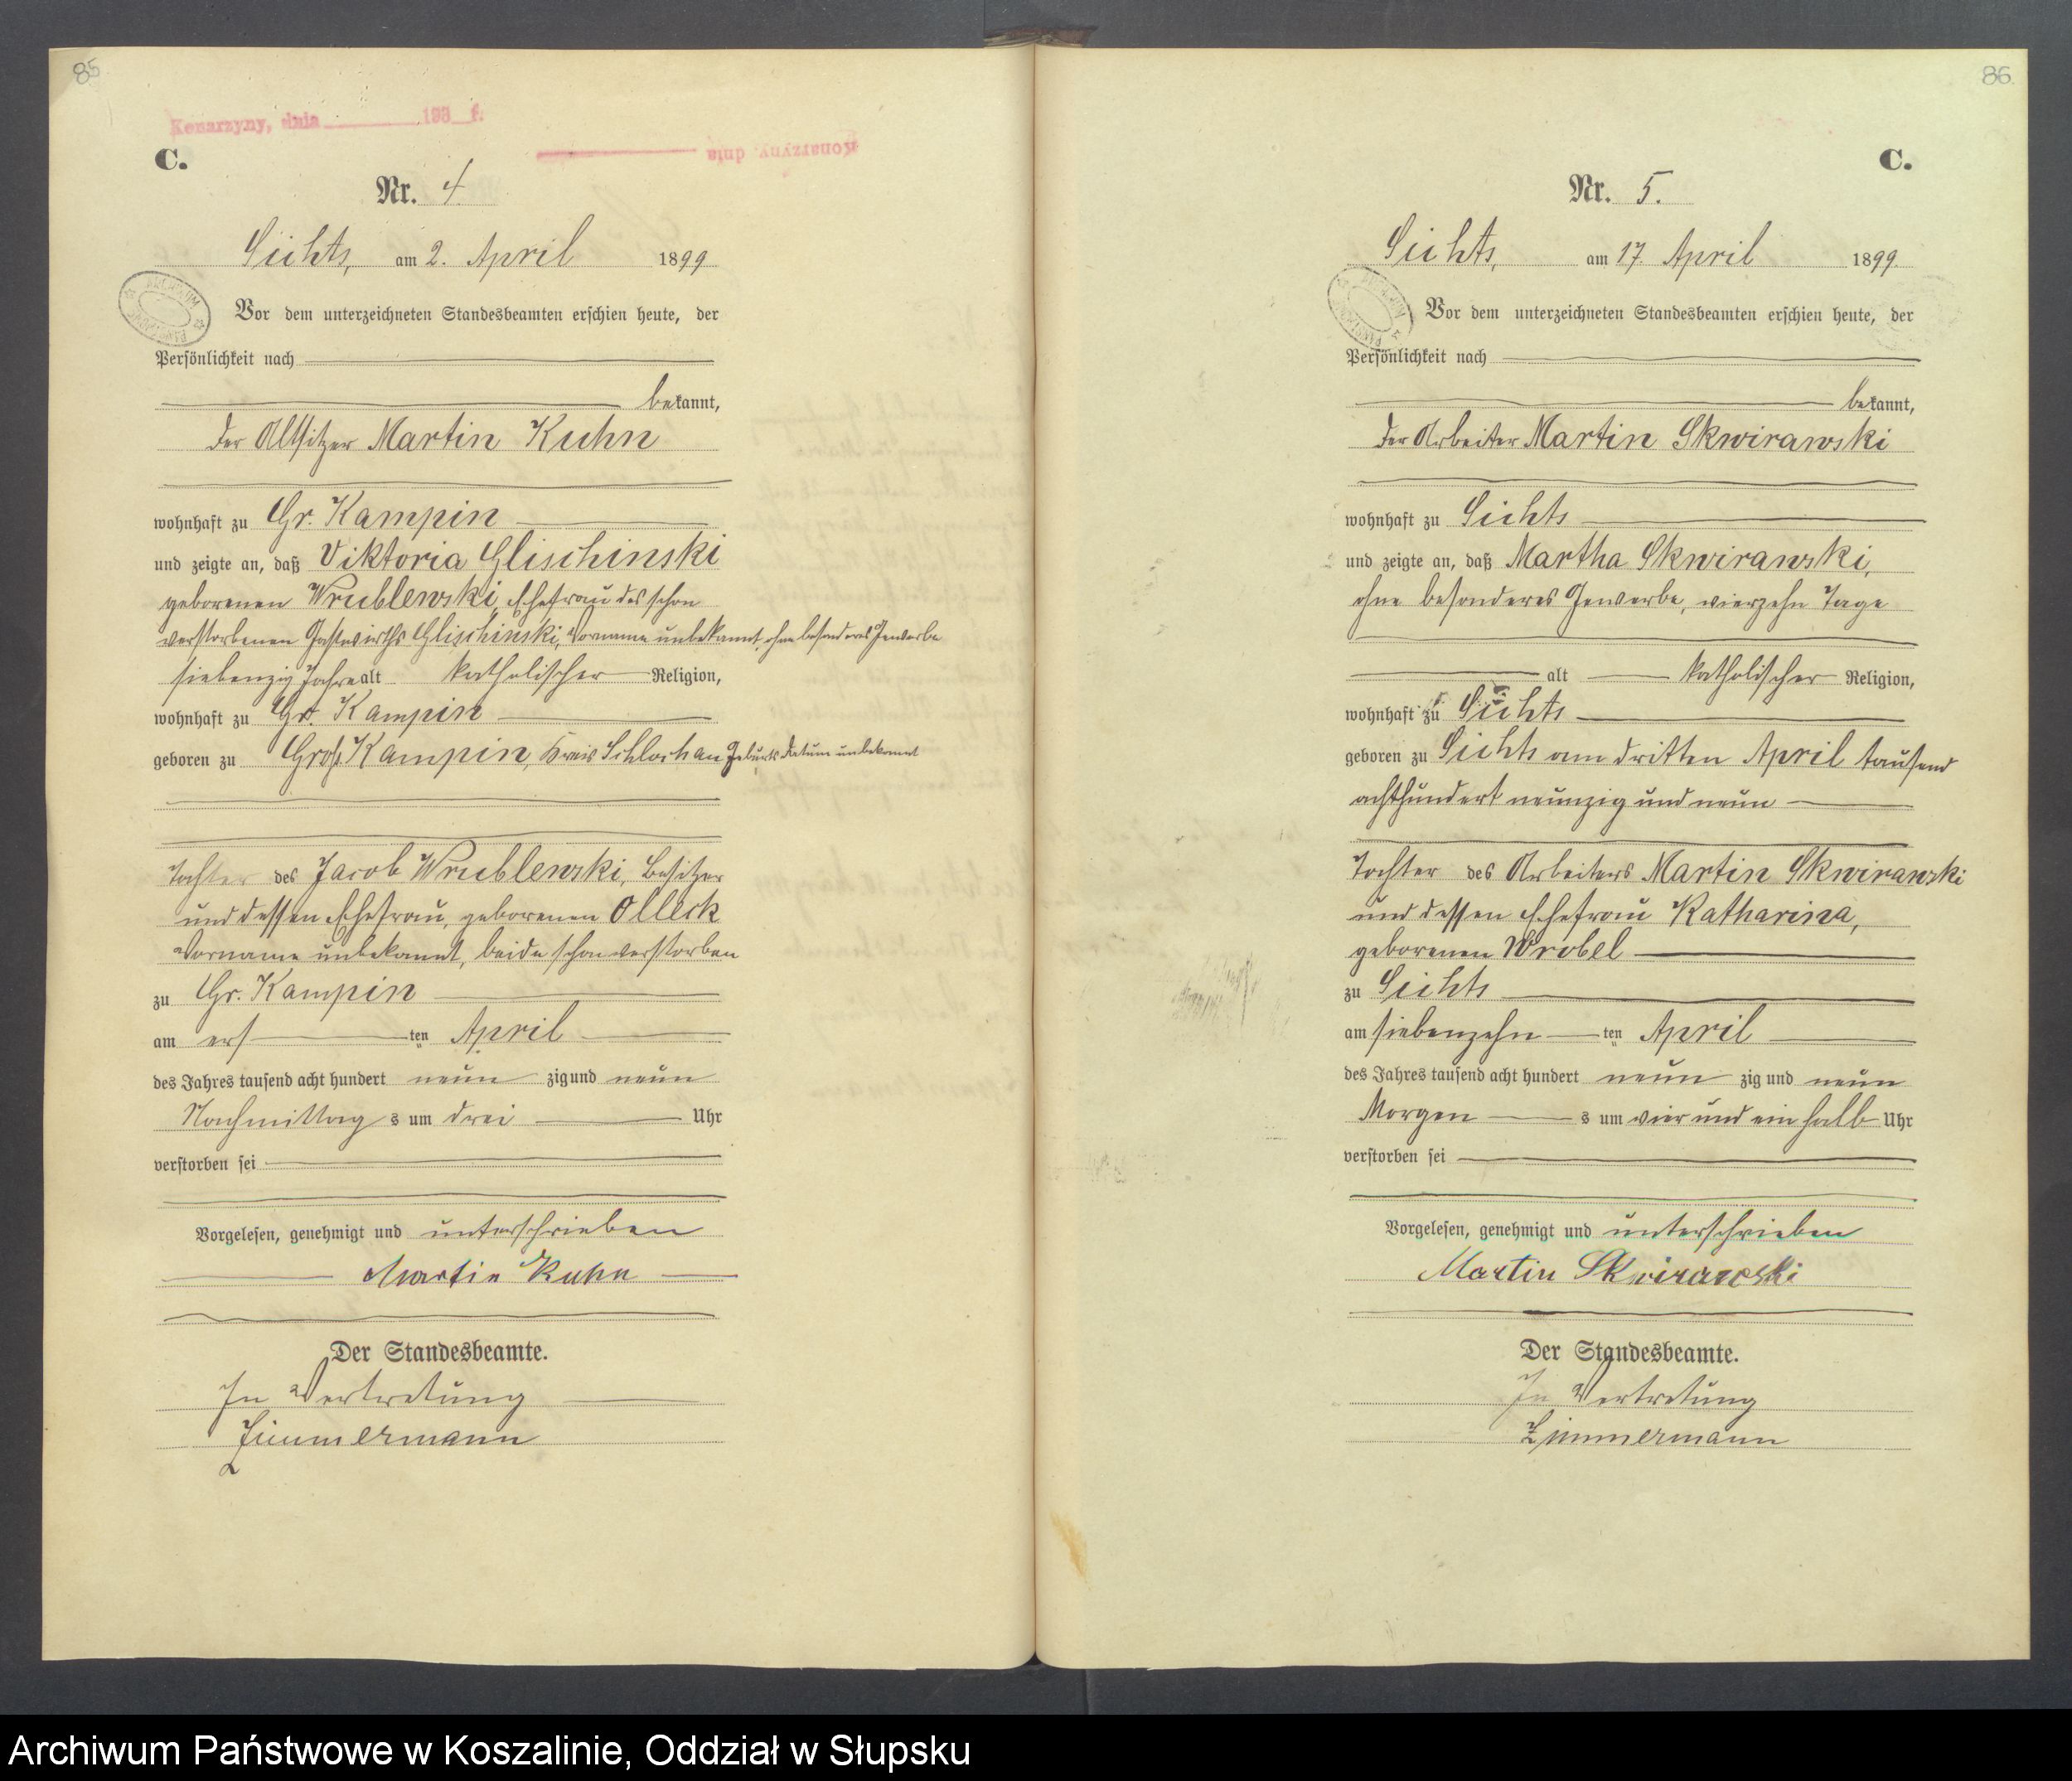 85
Konarzyny, dnia 193 r.
Konarzyny, dnia
C.
Nr. 4.
Sichts, am 2. April 1899
Vor dem unterzeichneten Standesbeamten erschien heute, der
Persönlichkeit nach
bekannt,
der Altsitzer Martin Kuhn
wohnhaft zu Gr. Kampin
und zeigte an, daß Viktoria Glischinski
geborenen Wrublewski, Ehefrau des schon
verstorbenen Gastwirths Glischinski, Vorname unbekannt, ohne besonderes Gewerbe
siebenzig Jahre alt katholischer Religion,
wohnhaft zu Gr. Kampin
geboren zu Groß Kampin, Kreis Schlochau Geburts Datum unbekannt
Tochter des Jacob Wrublewski, Besitzer
und dessen Ehefrau, geborenen Olleck
Vorname unbekannt, beide schon verstorben
zu Gr. Kampin
am ersten April
des Jahres tausend acht hundert neun zig und neun
Nachmittags um drei Uhr
verstorben sei
Vorgelesen, genehmigt und unterschrieben
Martin Kuhn
Der Standesbeamte.
In Vertretung
Zimmermann
86
C.
Nr. 5.
Sichts, am 17. April 1899.
Vor dem unterzeichneten Standesbeamten erschien heute, der
Persönlichkeit nach
bekannt,
der Arbeiter Martin Skwirawski
wohnhaft zu Sichts
und zeigte an, daß Martha Skwirawski,
ohne besonderes Gewerbe, vierzehn Tage
alt katholischer Religion,
wohnhaft zu Sichts
geboren zu Sichts am dritten April tausend
achthundert neunzig und neun
Tochter des Arbeiters Martin Skwirawski
und dessen Ehefrau Katharina,
geborenen Wrobel
zu Sichts
am siebenzehnten April
des Jahres tausend acht hundert neun zig und neun
Morgens um vier und ein halb Uhr
verstorben sei
Vorgelesen, genehmigt und unterschrieben
Martin Skwirawski
Der Standesbeamte.
In Vertretung
Zimmermann
Archiwum Państwowe w Koszalinie, Oddział w Słupsku